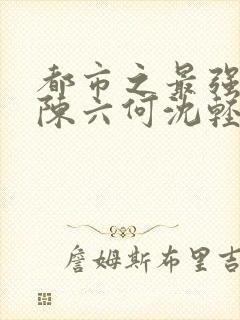 都市之最强
陈六何沈轻
詹姆斯布里吉